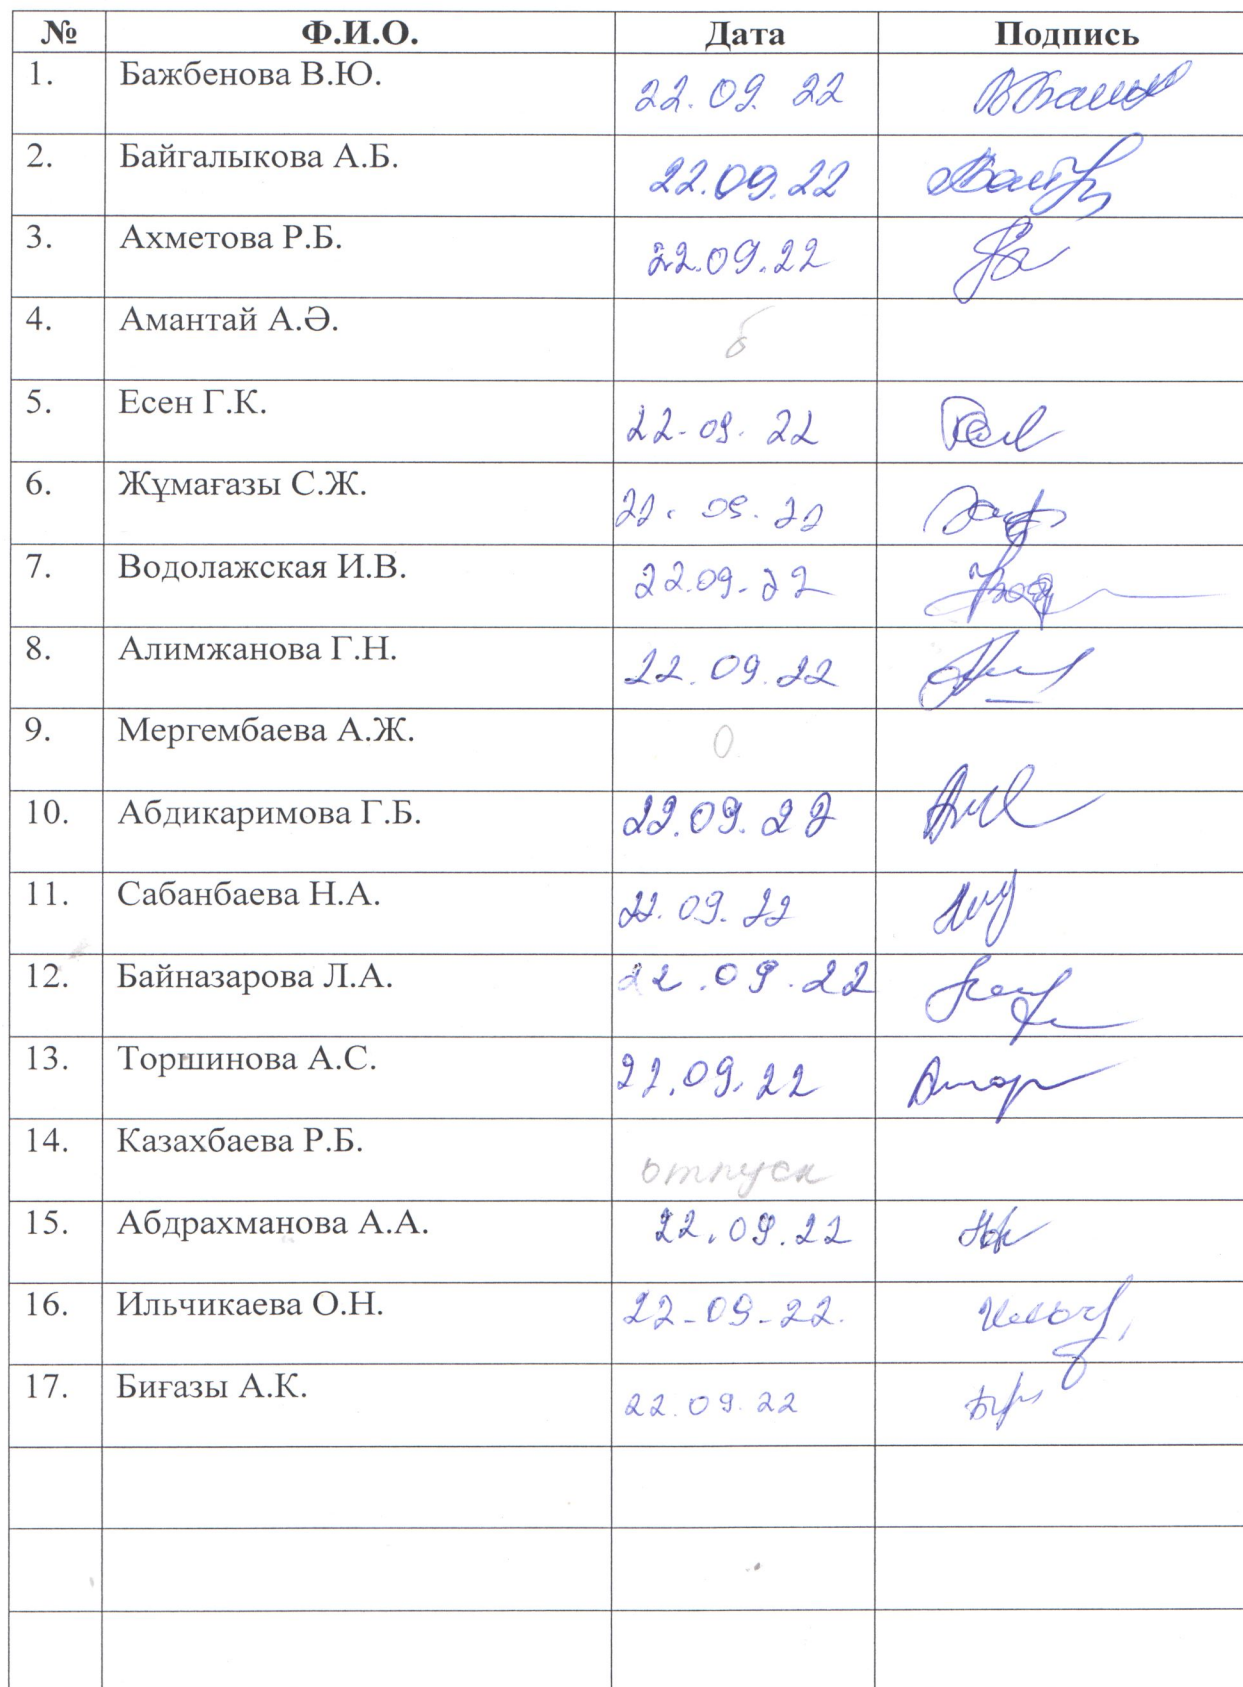 № Ф.И.О. Дата Подпись
1. Бажбенова В.Ю. 22.09.22
2. Байгалыкова А.Б. 22.09.22
3. Ахметова Р.Б. 22.09.22
4. Амантай А.Ә. б
5. Есен Г.К. 22-09-22
6. Жұмағазы С.Ж. 22.09.22
7. Водолажская И.В. 22.09-22
8. Алимжанова Г.Н. 22.09.22
9. Мергембаева А.Ж. О
10. Абдикаримова Г.Б. 22.09.22
11. Сабанбаева Н.А. 22.09.22
12. Байназарова Л.А. 22.09.22
13. Торшинова А.С. 22.09.22
14. Казахбаева Р.Б. отпуск
15. Абдрахманова А.А. 22.09.22
16. Ильчикаева О.Н. 22-09-22.
17. Биғазы А.К. 22.09.22